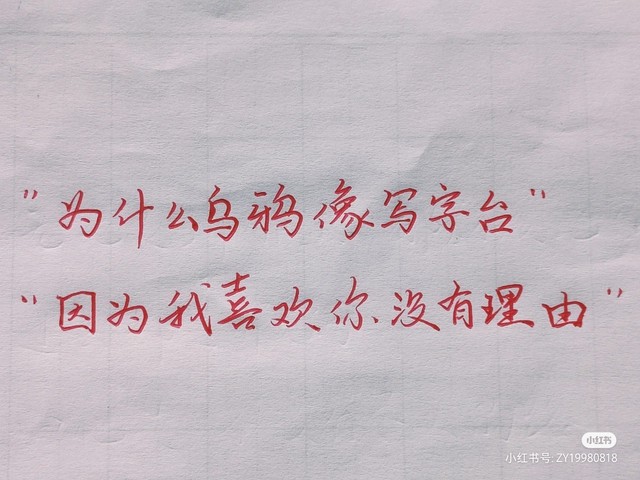 "为什么乌鸦像写字台"
"因为我喜欢你没有理由"
小红书
小红书号: ZY19980818